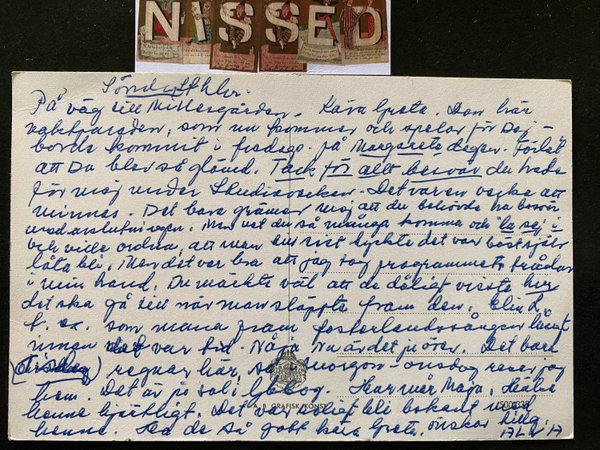 NISSED
På väg till Mittersgården. Kära Greta. Den här
vaktparaden, som nu kommer och spelar för Dej –
borde kommit i fredags. på Margareta dagen. Förlåt
att Du blev så glömd. Tack för allt besvär du hade
för mej under Studieveckan. Det var en vecka att
minnas. Det bara grämer mej att du behövde ha besvär
med avslutningen. Men vet du så många komma och la sej i
och ville ordna, att man till sist tyckte det var bäst själv
låta bli. Men det var bra att jag tog programmets trådar
i min hand. Du märkte väl att de dåligt visste hur
det ska gå till när man släppte fram dem.
t. ex. som mana fram fosterlandssången långt
innan det var tid. Nåja nu är det ju över. Det bara
regnar här, så i morgon – onsdag reser jag
hem. Det är ju sol i Gbg. Har mer Maja. Hälsa
henne hjärtligt. Det var roligt bli bekant med
henne. Ha de så gott kära Greta, önskar
GRAFISK KONST